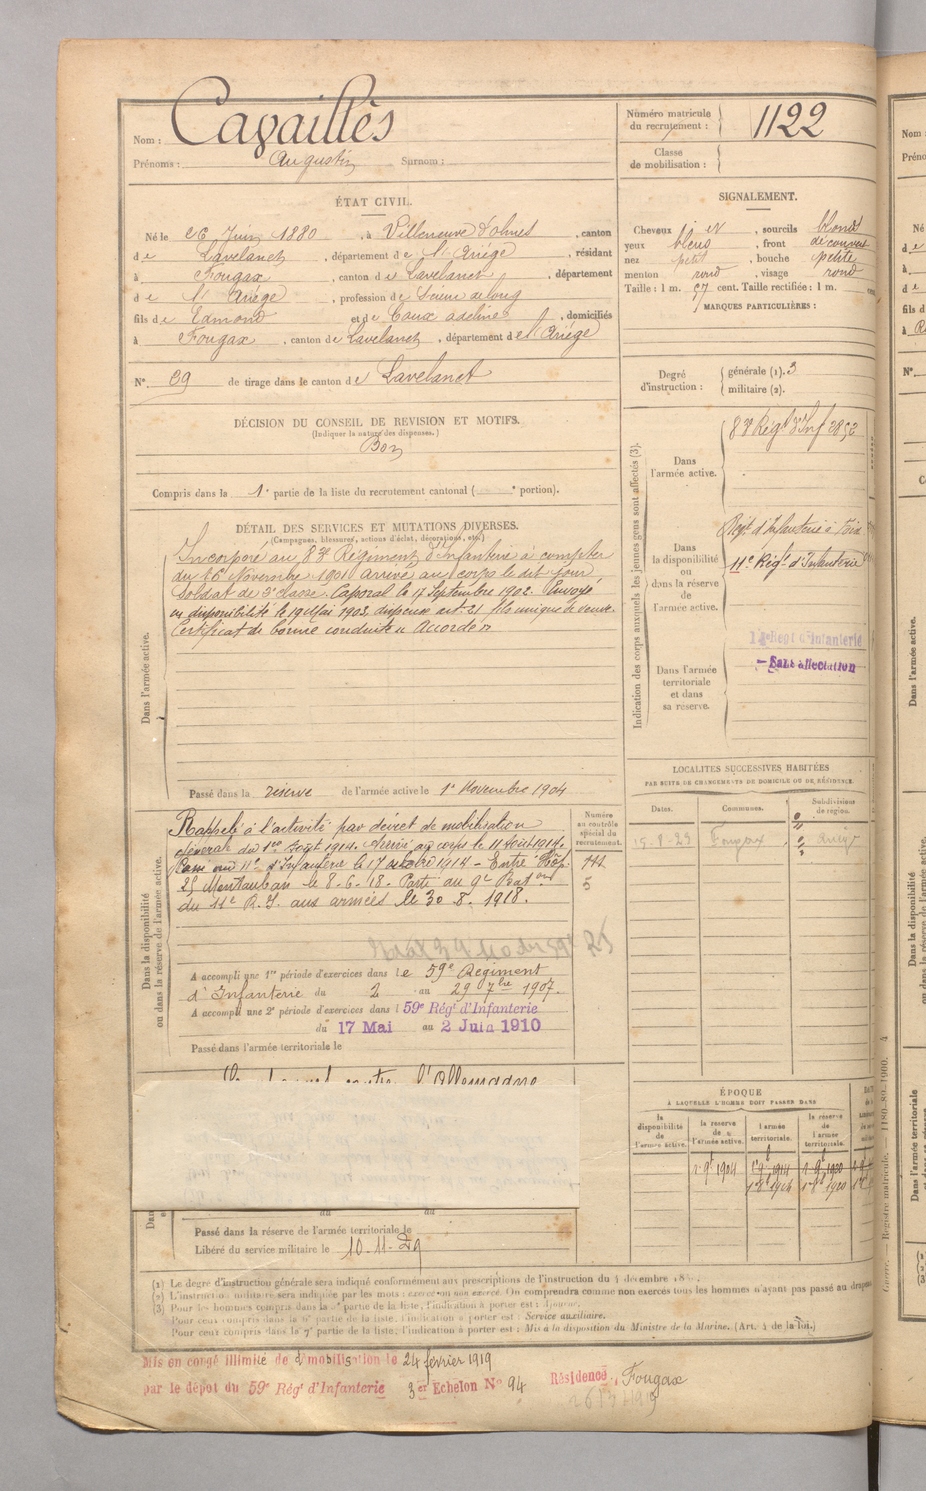 Nom : Cavaillès
Prénoms : Augustin Surnom :
Numéro matricule du recrutement : 1122
Classe de mobilisation :
ÉTAT CIVIL.
Né le 26 Juin 1880, à Villeneuve d'olmes, canton
de Lavelanet, département de l'Ariège, résidant
à Fougax, canton de Lavelanet, département
de l'Ariège, profession de Scieur de long
fils de Edmond et de Caux adeline, domiciliés
à Fougax, canton de Lavelanet, département de l'Ariège
N° 39 de tirage dans le canton de Lavelanet
SIGNALEMENT.
Cheveux et, sourcils blond
yeux bleus, front découvert
nez petit, bouche petite
menton rond, visage rond
Taille : 1 m. 57 cent. Taille rectifiée : 1 m. cent
MARQUES PARTICULIÈRES :
Degré d'instruction : générale (1). 3
militaire (2).
DÉCISION DU CONSEIL DE REVISION ET MOTIFS.
(Indiquer la nature des dispenses.)
Bon
Compris dans la 1e partie de la liste du recrutement cantonal ( e portion).
DÉTAIL DES SERVICES ET MUTATIONS DIVERSES.
(Campagnes, blessures, actions d'éclat, décorations, etc.)
Dans l'armée active.
Incorporé au 83e Régiment d'Infanterie à compter
du 16 Novembre 1901 arrivé au corps le dit jour
Soldat de 2e classe. Caporal le 17 Septembre 1902. Envoyé
en disponibilité le 19 Mai 1903, dispensé art. 21 fils unique de veuve.
Certificat de bonne conduite "Accordé"
Passé dans la réserve de l'armée active le 1er Novembre 1904
Indication des corps auxquels les jeunes gens sont affectés (3).
Dans l'armée active.
83e Régt d'Inf
Dans la disponibilité ou dans la réserve de l'armée active.
Régt d'Infanterie à Foix
11e Régt d'Infanterie
Dans l'armée territoriale et dans sa réserve.
Regt d'Infanterie
- Sans affectation
Dans la disponibilité ou dans la réserve de l'armée active.
Numéro au contrôle spécial du recrutement.
Rappelé à l'activité par décret de mobilisation
générale du 1er Août 1914. Arrivé au corps le 11 Août 1914.
Passé au 11e d'Infanterie le 17 octobre 1914 - Entré Hôp.
25 Montauban le 8-6-18. Parti au 9e Baton
du 11e R.I. aux armées le 30.8.1918.
A accompli une 1re période d'exercices dans le 59e Régiment
d'Infanterie du 2 au 29 7bre 1907.
A accompli une 2e période d'exercices dans l 59e Régt d'Infanterie
du 17 Mai au 2 Juin 1910
Passé dans l'armée territoriale le
contre l'Allemagne
LOCALITÉS SUCCESSIVES HABITÉES
PAR SUITE DE CHANGEMENTS DE DOMICILE OU DE RÉSIDENCE.
Dates. Communes. Subdivisions de région.
15-8-23 Fougax
ÉPOQUE
À LAQUELLE L'HOMME DOIT PASSER DANS
la disponibilité de l'armée active. la réserve de l'armée active. l'armée territoriale. la réserve de l'armée territoriale.
du au
Passé dans la réserve de l'armée territoriale le
Libéré du service militaire le 10-11-29
(1) Le degré d'instruction générale sera indiqué conformément aux prescriptions de l'instruction du 4 décembre
(2) L'instruction militaire sera indiquée par les mots : exercé ou non exercé. On comprendra comme non exercés tous les hommes n'ayant pas passé au drapeau
(3) Pour les hommes compris dans la 5e partie de la liste, l'indication à porter est : Ajourné.
Pour ceux compris dans la 6e partie de la liste, l'indication à porter est : Service auxiliaire.
Pour ceux compris dans la 7e partie de la liste, l'indication à porter est : Mis à la disposition du Ministre de la Marine. (Art. 4 de la loi.)
Mis en congé illimité de démobilisation le 24 février 1919
par le dépot du 59e Régt d'Infanterie 3er Echelon N° 94 Résidence, Fougax